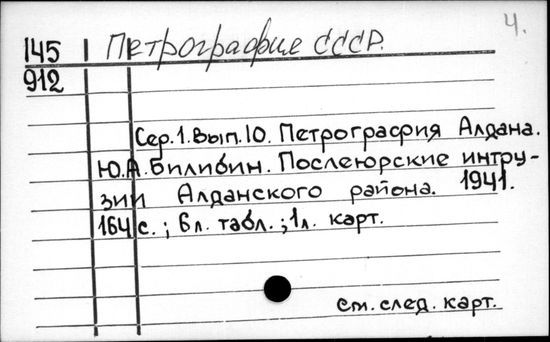 4.
145 Петрография СССР.
912
Сер.1.Вып.10. Петрография Алдана.
Ю.А.Билибин. Послеюрские интру-
зии Алданского района. 1941.
164 с.; 6л. табл.; 1л. карт.
см. след. карт.